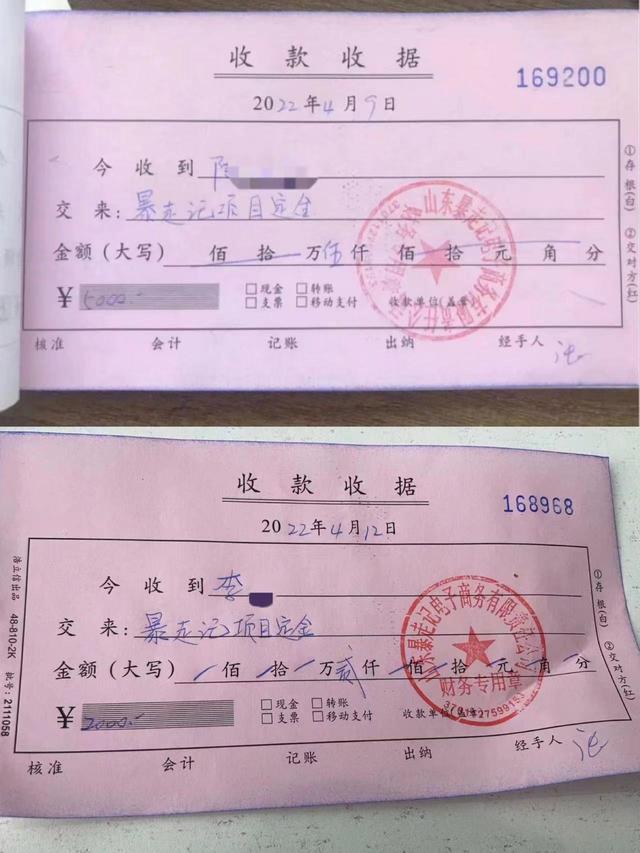 收款收据
169200
2022年4月9日
今收到 陈
交来：暴走记项目定金
金额（大写） 佰 拾 万 伍仟 佰 拾 元 角 分
¥ 5000.-
□现金 □转账
□支票 □移动支付
收款单位（盖章）
核准 会计 记账 出纳 经手人
①存根（白） ②交对方（红）
收款收据
168968
2022年4月12日
今收到 李
交来：暴走记项目定金
金额（大写） 佰 拾 万 贰仟 佰 拾 元 角 分
¥ 2000.-
□现金 □转账
□支票 □移动支付
收款单位（盖章）
山东暴走记电子商务有限责任公司
财务专用章
核准 会计 记账 出纳 经手人
①存根（白） ②交对方（红）
浩立信出品 48-810-2K 批号：2111058